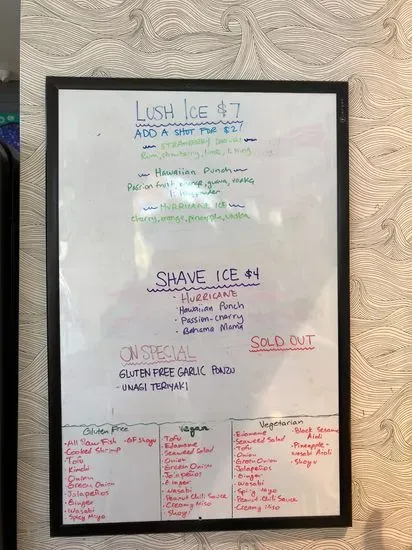 LUSH ICE $7
ADD A SHOT FOR $2!
STRAWBERRY
Rum, strawberry, lime,
Hawaiian Punch
Passion fruit, orange, guava, vodka
HURRICANE ICE
cherry, orange, pineapple, vodka
SHAVE ICE $4
- HURRICANE
- Hawaiian Punch
- Passion-cherry
- Bahama Mama
ON SPECIAL
SOLD OUT
GLUTEN FREE GARLIC PONZU
- UNAGI TERIYAKI
Gluten Free
- All Raw Fish
- Cooked Shrimp
- Tofu
- Kimchi
- Onion
- Green Onion
- Jalapeños
- Ginger
- Wasabi
- Spicy Mayo
- GF Shoyu
Vegan
- Tofu
- Edamame
- Seaweed Salad
- Onion
- Green Onion
- Jalapeños
- Ginger
- Wasabi
- Peanut Chili Sauce
- Creamy Miso
- Shoyu
Vegetarian
- Edamame
- Seaweed Salad
- Tofu
- Onion
- Green Onion
- Jalapeños
- Ginger
- Wasabi
- Spicy Mayo
- Peanut Chili Sauce
- Creamy Miso
- Black Sesame
Aioli
- Pineapple-
Wasabi Aioli
- Shoyu